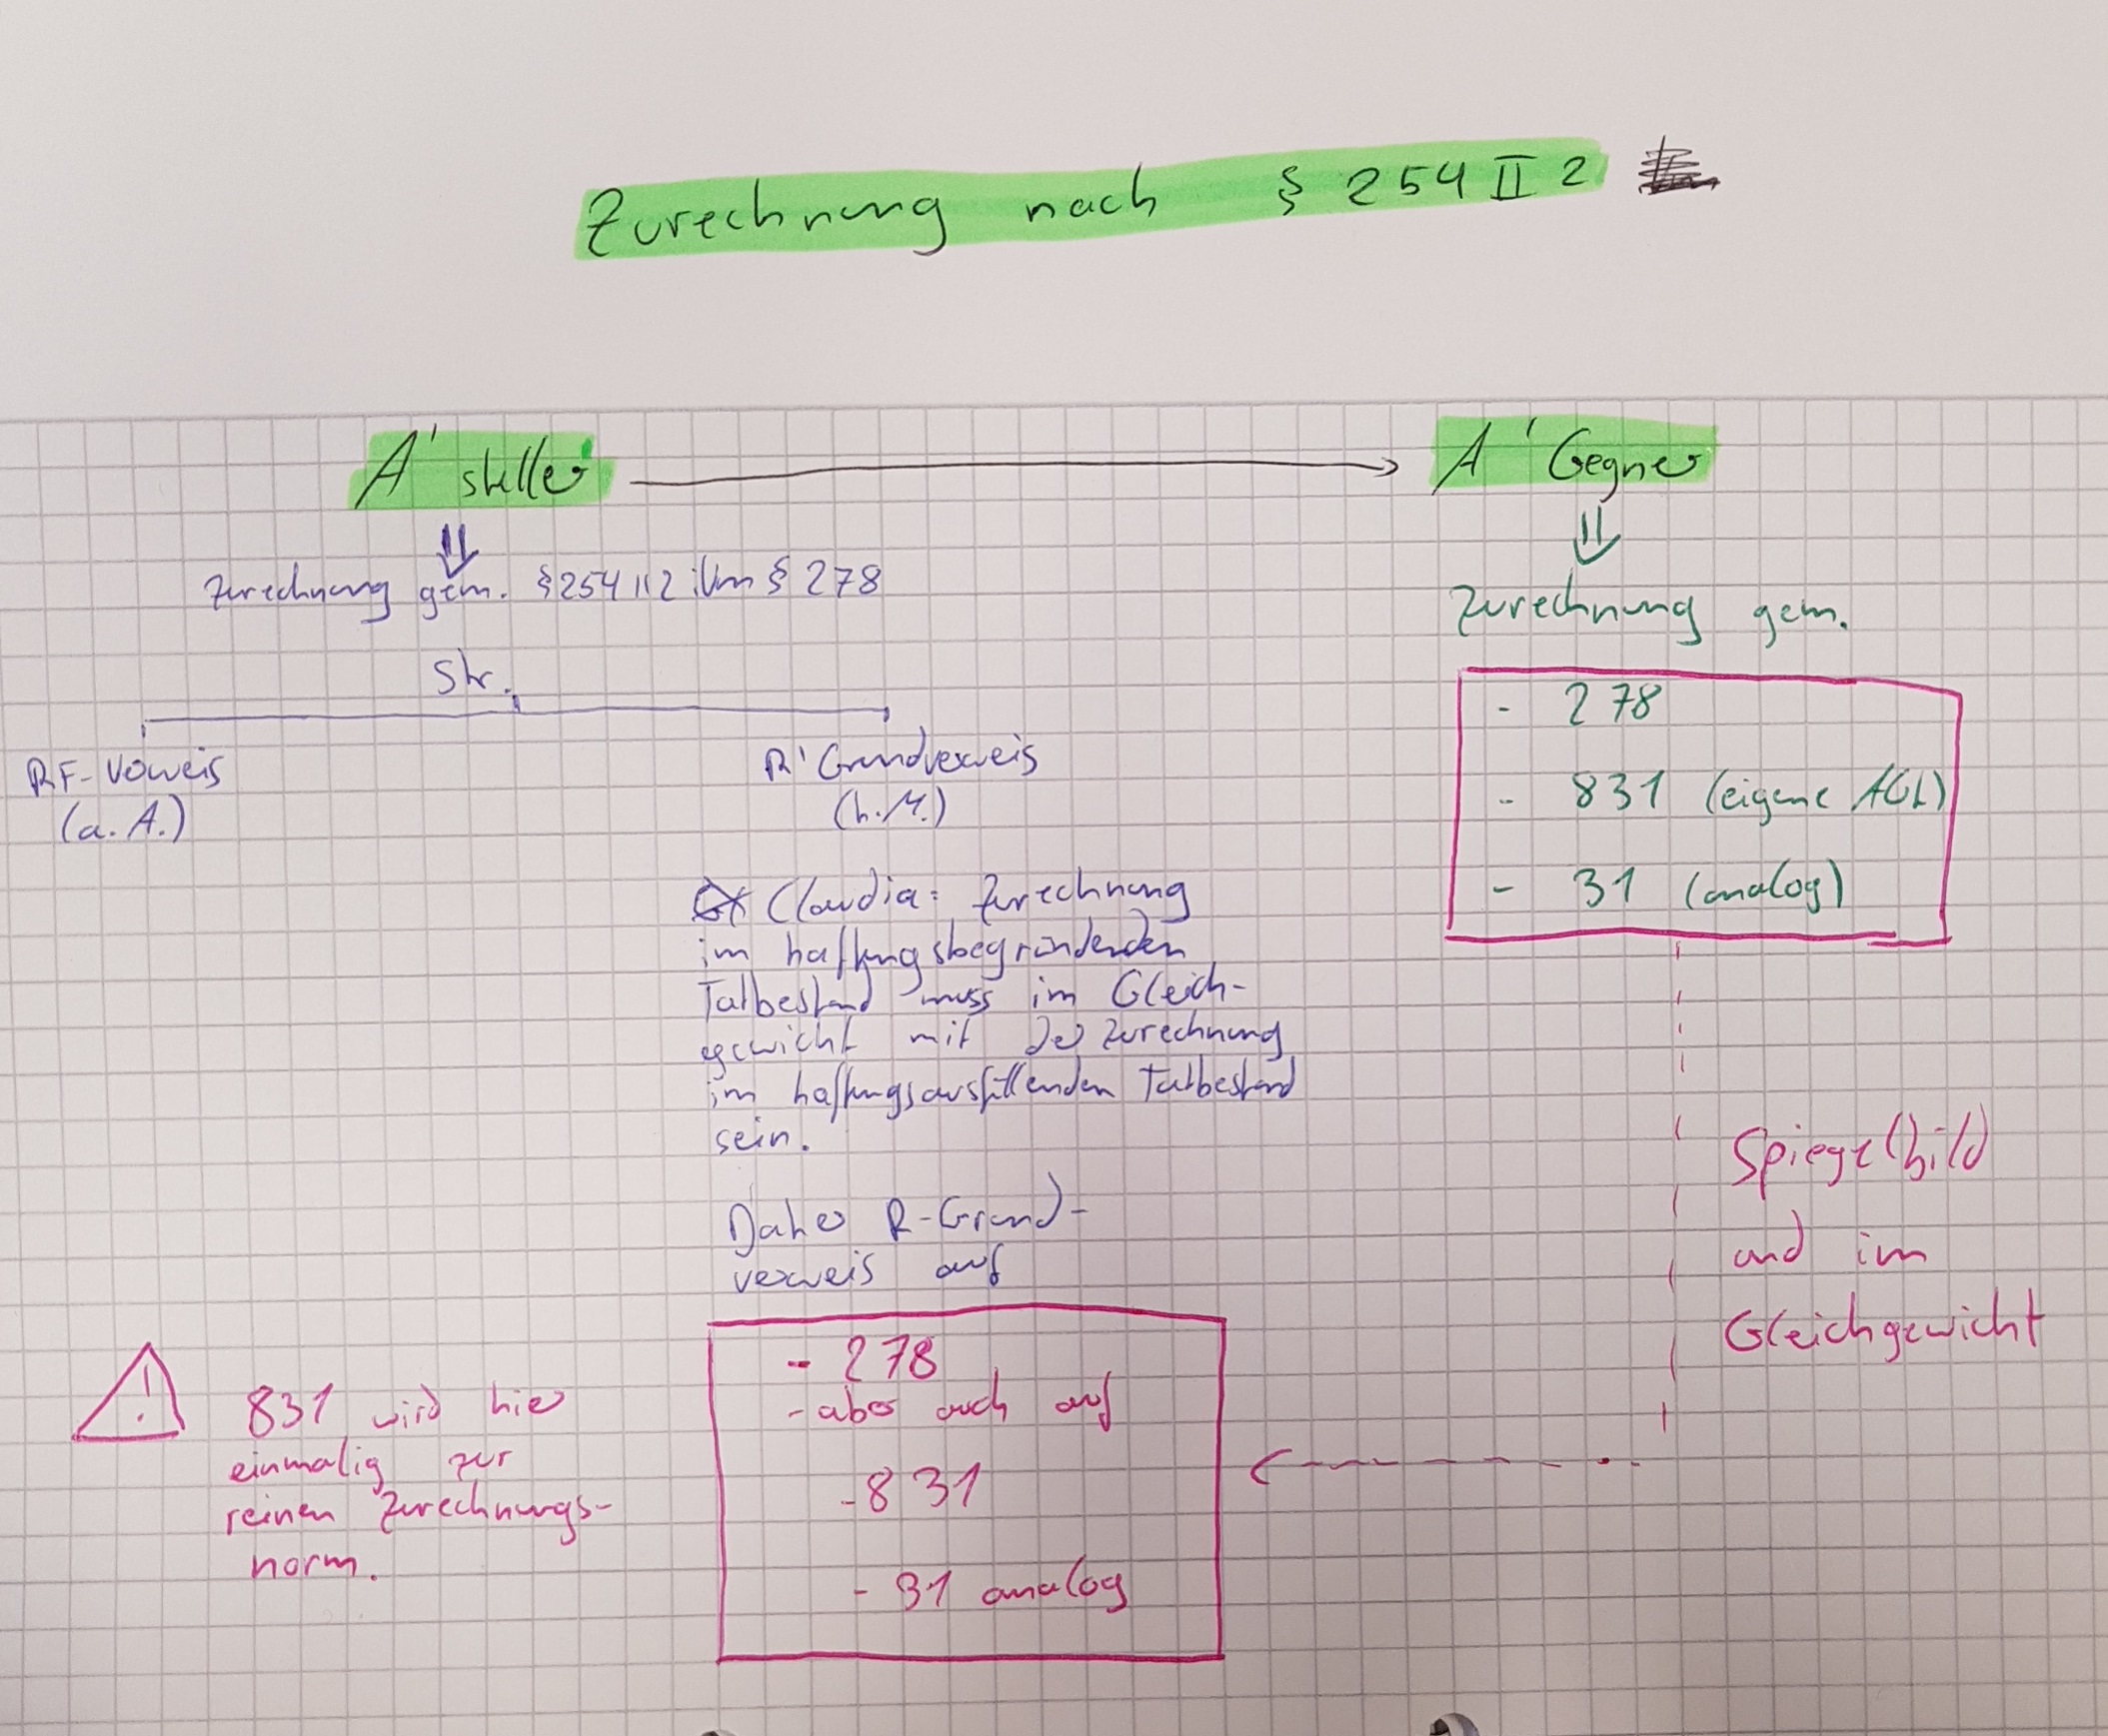 Zurechnung nach § 254 II 2
A'steller
A'Gegner
Zurechnung gem. § 254 II 2 iVm § 278
Str.
RF-Verweis
(a. A.)
R'Grundverweis
(h.M.)
Claudia: Zurechnung
im haftungsbegründenden
Tatbestand muss im Gleich-
gewicht mit der Zurechnung
im haftungsausfüllenden Tatbestand
sein.
Daher R-Grund-
verweis auf
- 278
- aber auch auf
- 831
- 31 analog
831 wird hier
einmalig zur
reinen Zurechnungs-
norm.
Zurechnung gem.
- 278
- 831 (eigene AGL)
- 31 (analog)
Spiegelbild
und im
Gleichgewicht